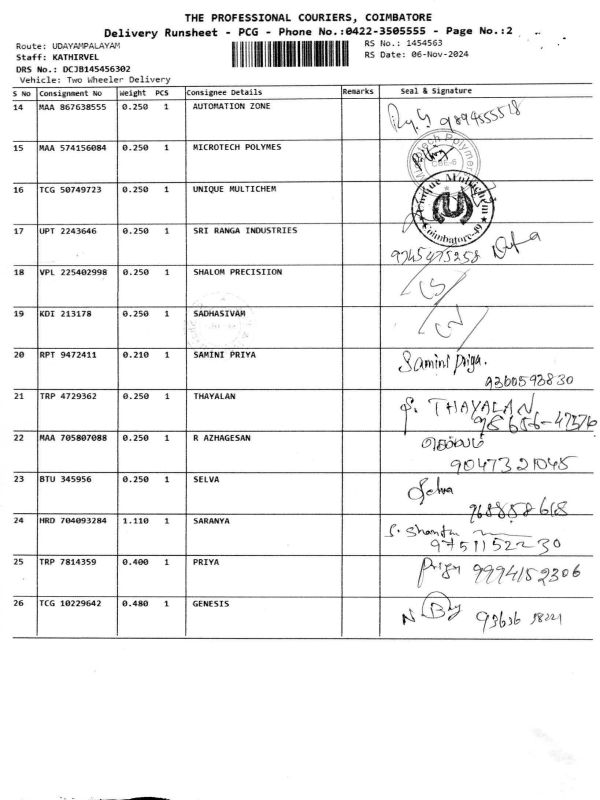 THE PROFESSIONAL COURIERS, COIMBATORE
Delivery Runsheet - PCG - Phone No.:0422-3505555 - Page No.:2
Route: UDAYAMPALAYAM RS No.: 1454563
Staff: KATHIRVEL RS Date: 06-Nov-2024
DRS No.: DCJB145456302
Vehicle: Two Wheeler Delivery
S No Consignment No Weight PCS Consignee Details Remarks Seal & Signature
14 MAA 867638555 0.250 1 AUTOMATION ZONE
15 MAA 574156084 0.250 1 MICROTECH POLYMES
16 TCG 50749723 0.250 1 UNIQUE MULTICHEM Unique Multichem Coimbatore-49
17 UPT 2243646 0.250 1 SRI RANGA INDUSTRIES
9745475258
18 VPL 225402998 0.250 1 SHALOM PRECISIION
19 KDI 213178 0.250 1 SADHASIVAM
20 RPT 9472411 0.210 1 SAMINI PRIYA Samini Priya.
9360593830
21 TRP 4729362 0.250 1 THAYALAN S. THAYALAN
98656-47576
22 MAA 705807088 0.250 1 R AZHAGESAN செல்வம்
9047321045
23 BTU 345956 0.250 1 SELVA Selva
24 HRD 704093284 1.110 1 SARANYA
9751152230
25 TRP 7814359 0.400 1 PRIYA Priya 9994152306
26 TCG 10229642 0.480 1 GENESIS N